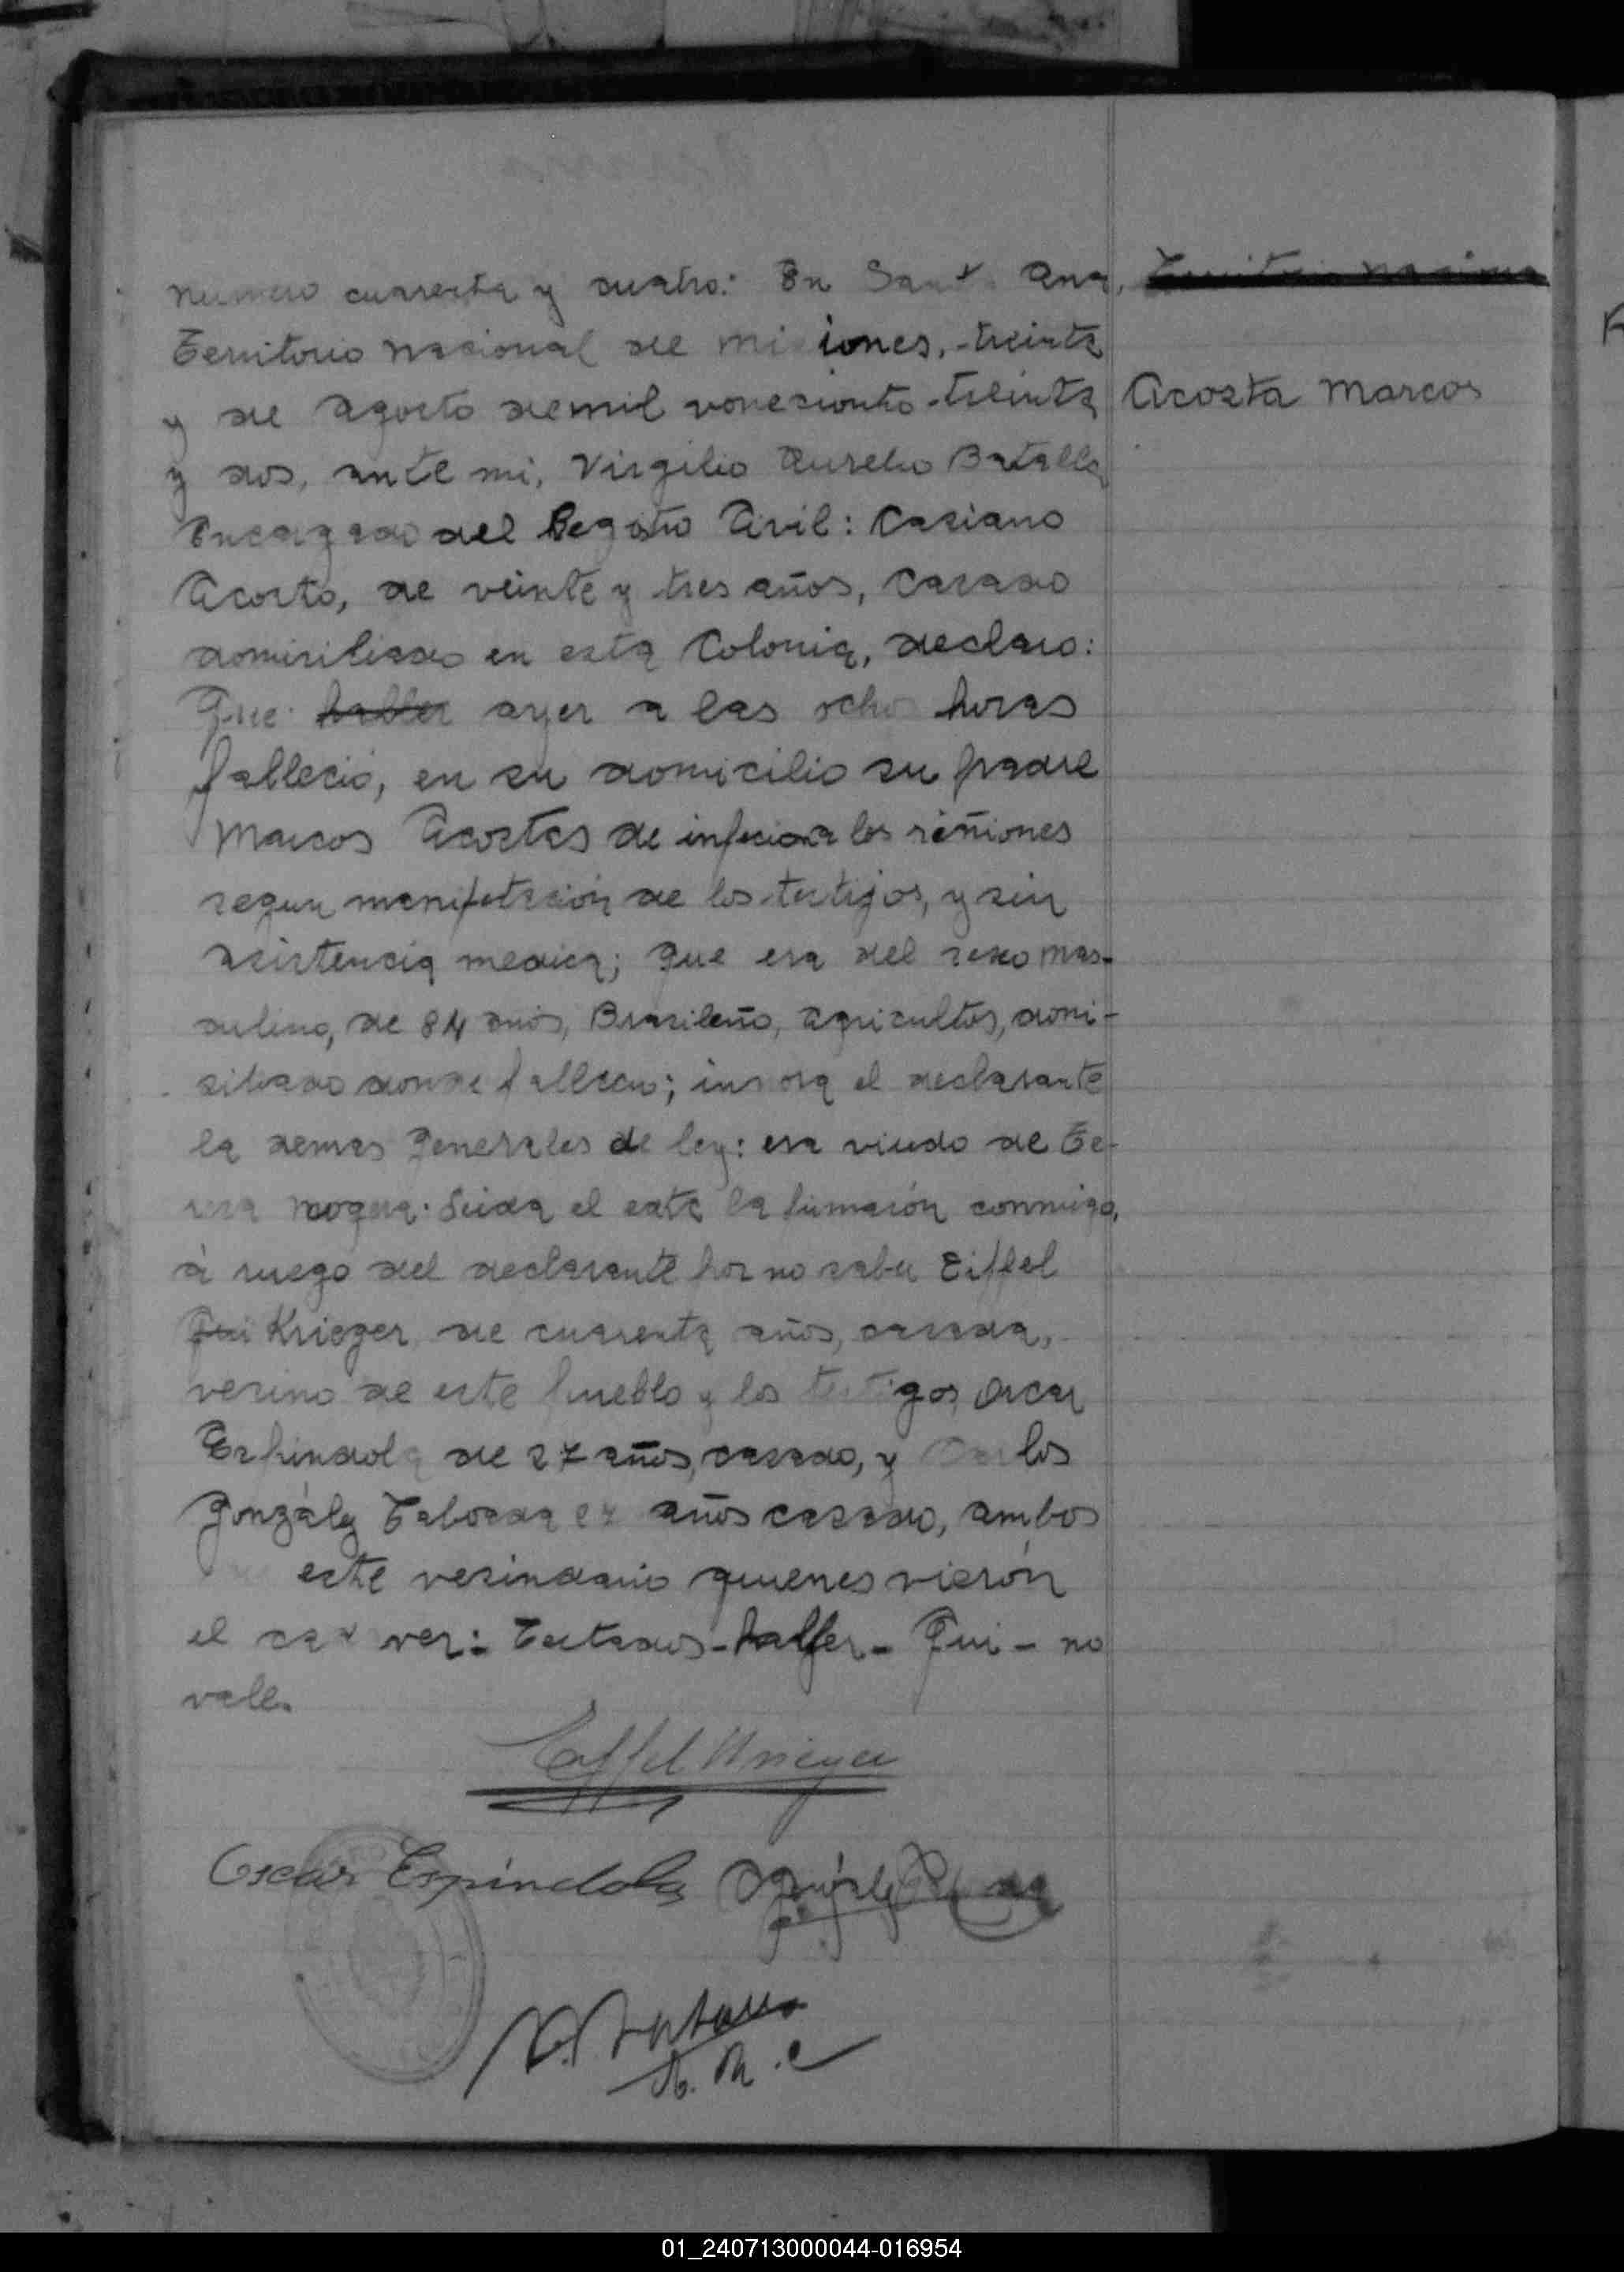 numero cuarenta y cuatro: En Santa Ana,
Territorio nacional de misiones, treinta
y de Agosto de mil novecientos treinta
y dos, ante mi, Virgilio Aurelio Batalla
Encargado del Registro Civil: Casiano
Acosta, de veinte y tres años, Casado
domiciliado en esta Colonia, declaro:
Que haller ayer a las ocho horas
fallecio, en su domicilio su padre
Marcos Acostas de infecion a los riñiones
segun manifetación de los testigos, y sin
asistencia medica; que era del sexo mas-
culino, de 84 años, Brasileño, agricultor, domi-
ciliado donde fallecio; el declarante
la demas generales de ley: era viudo de Te-
resa el acta la firmarón conmigo,
á ruego del declarante por no saber Eiffel
Qui Krieger de cuarenta años, casada,
vecino de este pueblo y los testigos, Oscar
Espindola de 27 años, casado, y Carlos
González Taboada años casado, ambos
de este vecindario quienes vierón
el cadaver: Testados - haller - Qui - no
vale.
Eiffel Krieger
Oscar Espíndola
Territorio naciona
Acosta Marcos
01_240713000044-016954